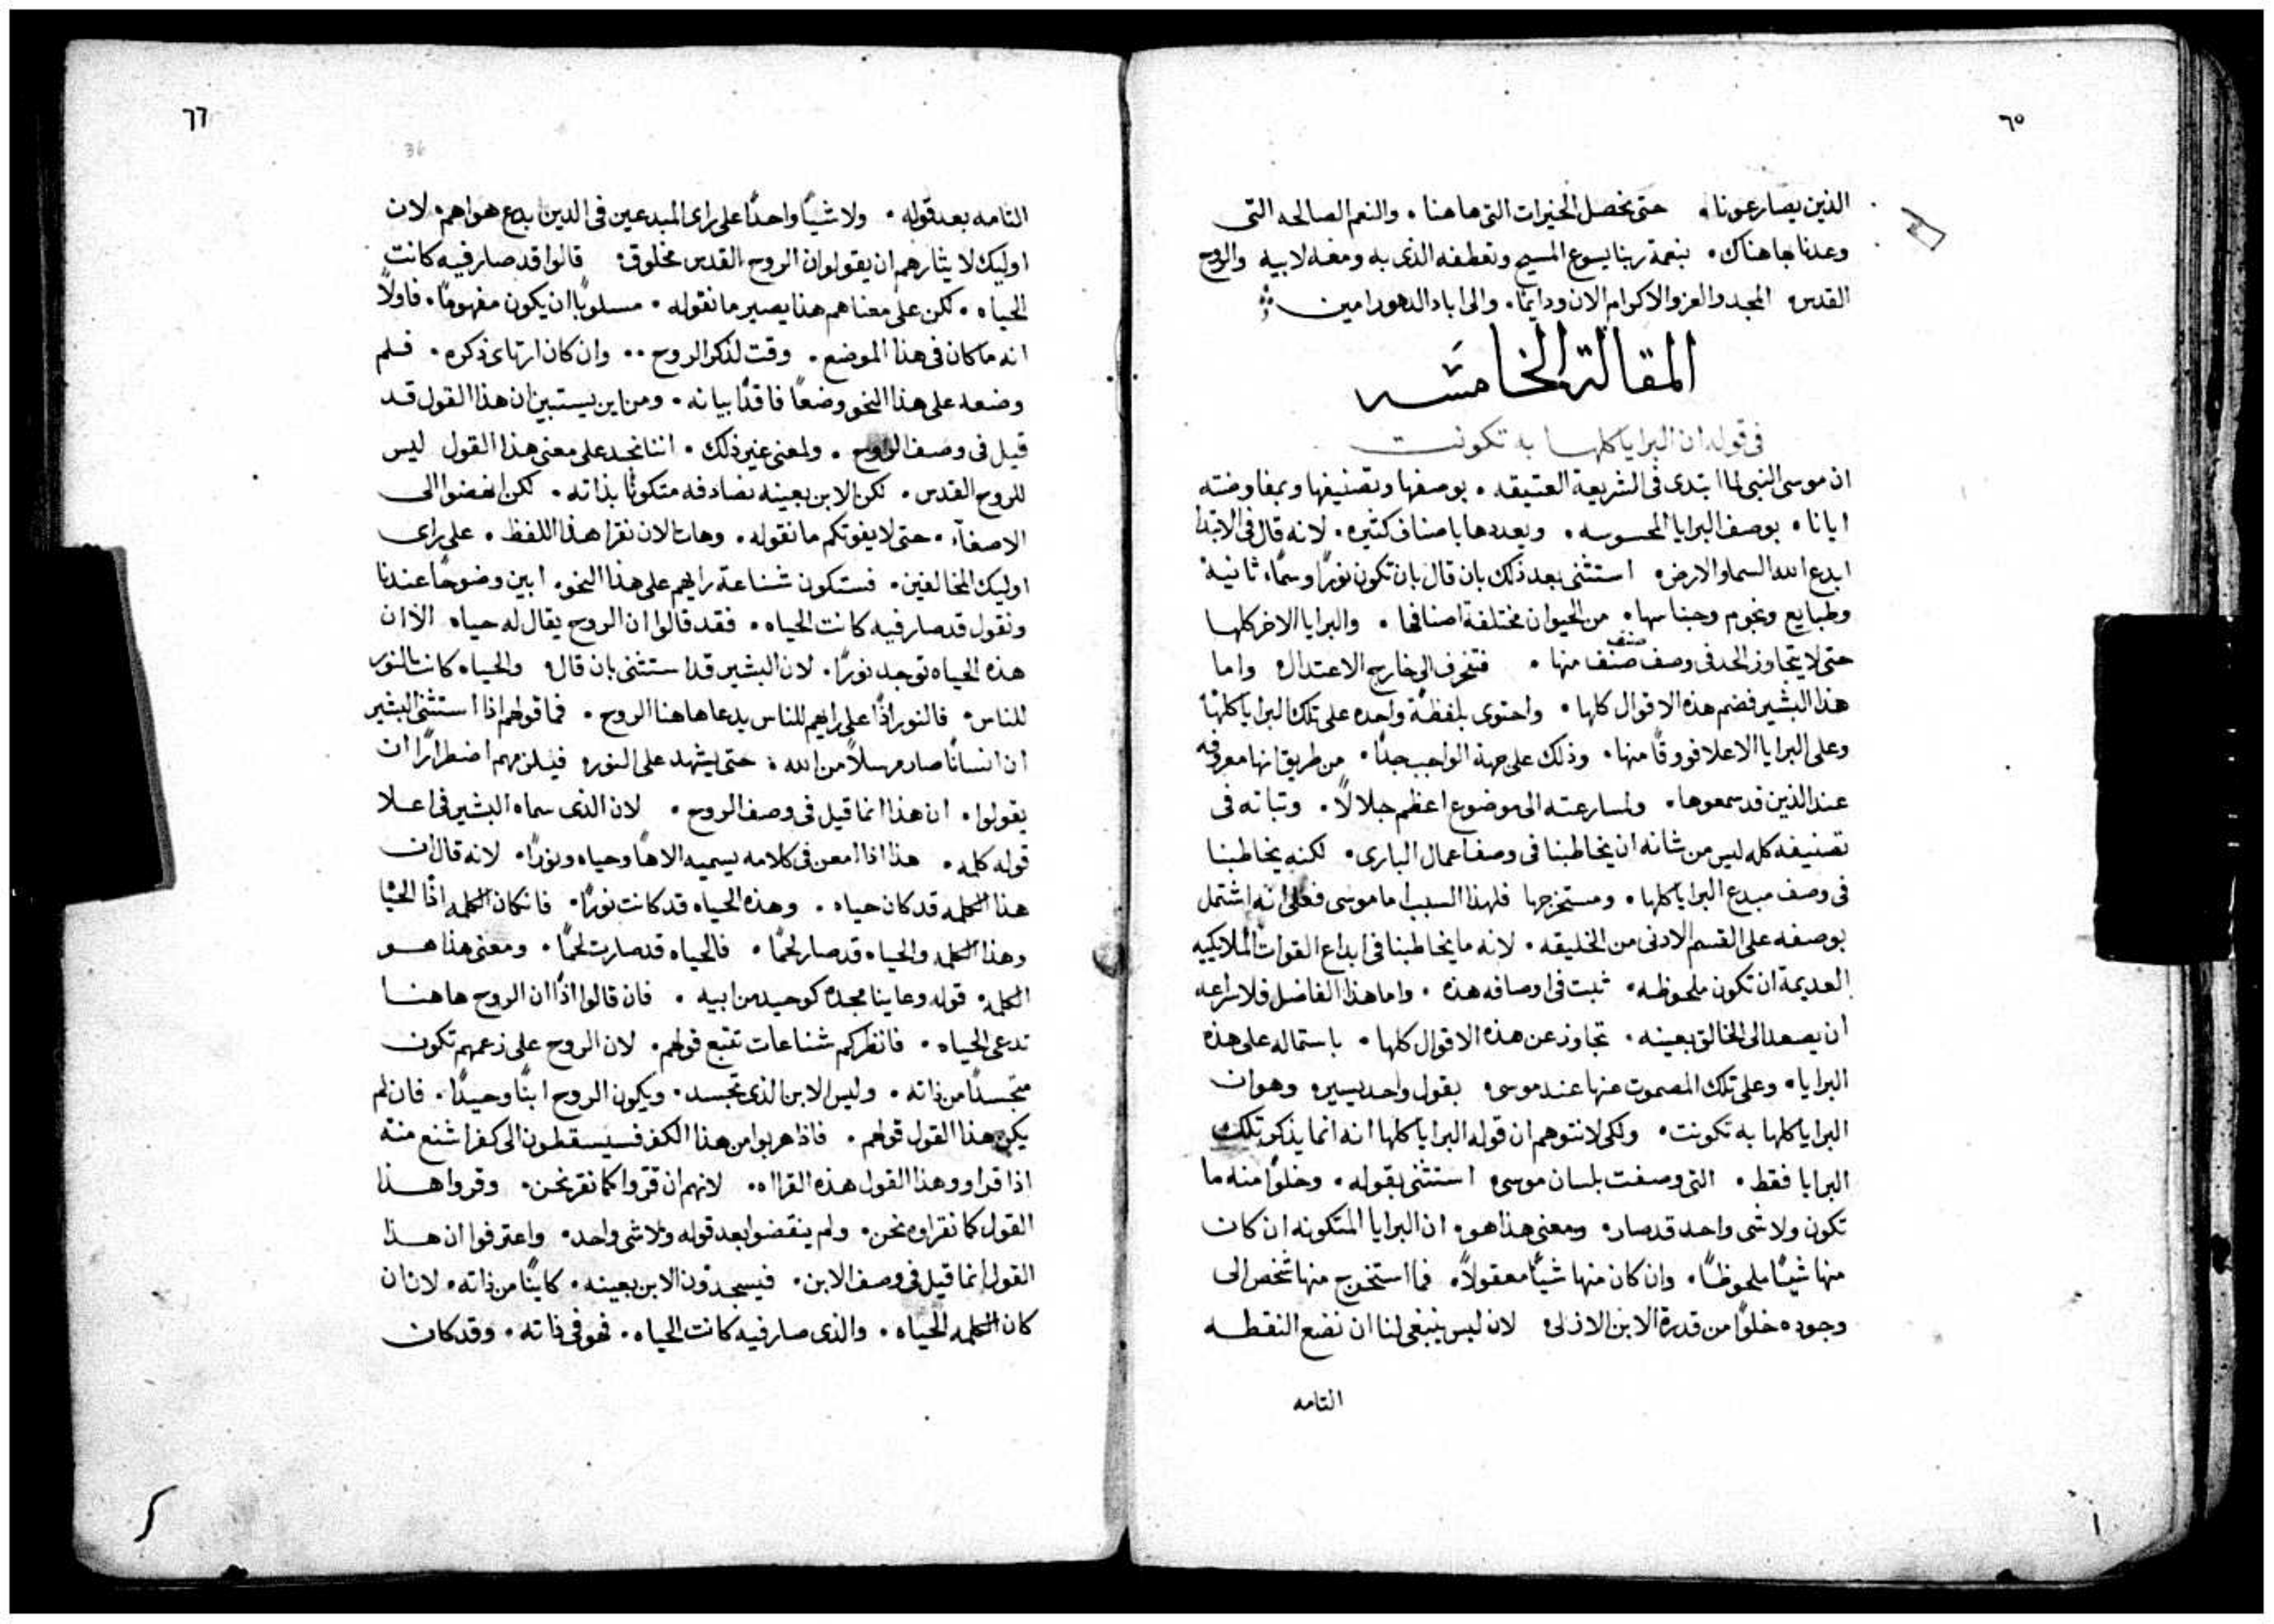 ٦٥
الذين يصارعونا. حتى نحصل الخيرات التى هاهنا. والنعم الصالحه التى
وعدنا بها هناك. بنعمة ربنا يسوع المسيح وتعطفه الذى به ومعه لابيه والروح
القدس المجد والعز والاكرام الان ودايمًا. والى اباد الدهور امين
المقالة الخامسه
فى قوله ان البرايا كلها به تكونت
ان موسى النبى لما ابتدى فى الشريعة العتيقه. بوصفها وتصنيفها وبمفاوضته
ايانا. بوصف البرايا المحسوسه. ويعددها باصناف كثيره. لانه قال فى الابتدا
ابدع الله السما والارض. استثنى بعد ذلك بان قال بان تكون نورًا وسمًا ثانية
وطبايع ونجوم وجناسها. من الحيوان مختلفة اصنافها. والبرايا الاخر كلها
حتى لا يتجاوز الحد فى وصف صنف صنف منها. فتنحرف الى خارج الاعتدال واما
هذا البشير فضم هذه الاقوال كلها. واحتوى بلفظة واحده على تلك البرايا كلها
وعلى البرايا الاعلا فووقًا منها. وذلك على جهة الواجب جدًا. من طريق انها معروفه
عند الذين قد سمعوها. ولمسارعته الى موضوع اعظم جلالاً. وثباته فى
تصنيفه كله ليس من شانه ان يخاطبنا فى وصف اعمال البارى. لكنه يخاطبنا
فى وصف مبدع البرايا كلها. ومستخرجها فلهذا السبب اما موسى فعلى انه اشتمل
بوصفه على القسم الادنى من الخليقه. لانه ما يخاطبنا فى ابداع القوات الملايكيه
العديمة ان تكون ملحوظه. ثبت فى اوصافه هذه. واما هذا الفاضل فلاسراعه
ان يصعد الى الخالق بعينه. تجاوز عن هذه الاقوال كلها. باستماله على هذه
البرايا. وعلى تلك المصموت عنها عند موسى بقول واحد يسير وهو ان
البرايا كلها به تكونت. ولكى لا نتوهم ان قوله البرايا كلها انه انما يذكر تلك
البرايا فقط. التى وصفت بلسان موسى استثنى بقوله. وخلوًا منه ما
تكون ولا شى واحد قد صار. ومعنى هذا هو. ان البرايا المتكونه ان كان
منها شيًا ملحوظًا. وان كان منها شيًا معقولاً. فما استخرج منها شخص الى
وجوده خلوًا من قدرة الابن الازلى لان ليس ينبغى لنا ان نضع النقطه
التامه
٦٦
36
التامه بعد قوله. ولا شيًا واحدًا على راى المبدعين فى الدين بدع هواهم. لان
اوليك لايثارهم ان يقولوا ان الروح القدس مخلوق. قالوا قد صار فيه كانت
الحياه. لكن على معناهم هذا يصير ما نقوله. مسلوبًا ان يكون مفهومًا. فاولاً
انه ما كان فى هذا الموضع. وقت لذكر الروح.. وان كان ارتاى ذكره. فلم
وضعه على هذا النحو وضعًا فاقدًا بيانه. ومن اين يستبين ان هذا القول قد
قيل فى وصف الروح. ولمعنى غير ذلك. اننا نجد على معنى هذا القول ليس
للروح القدس. لكن الابن بعينه نصادفه متكونًا بذاته. لكن انهضوا الى
الاصغآء. حتى لا يفوتكم ما نقوله. وهات الان نقرا هذا اللفظ. على راى
اوليك المخالفين. فستكون شناعة رايهم على هذا النحو. ابين وضوحًا عندنا
ونقول قد صار فيه كانت الحياه. فقد قالوا ان الروح يقال له حياه الا ان
هذه الحياه توجد نورًا. لان البشير قد استثنى بان قال. والحياه كانت النور
للناس. فالنور اذًا على رايهم للناس يدعا هاهنا الروح. فما قولهم اذا استثنى البشير
ان انسانًا صار مرسلاً من الله. حتى يشهد على النور. فيلزمهم اضطرارًا ان
يقولوا. ان هذا انما قيل فى وصف الروح. لان الذى سماه البشير فى اعلا
قوله كلمه. هذا اذا امعن فى كلامه يسميه الاهًا وحياه ونورًا. لانه قال ان
هذا الكلمه قد كان حياه. وهذه الحياه قد كانت نورًا. فان كان الكلمه اذًا الحياه
وهذا الكلمه والحياه قد صار لحمًا. فالحياه قد صارت لحمًا. ومعنى هذا هو
الكلمه. قوله وعاينا مجده كوحيد من ابيه. فان قالوا اذًا ان الروح هاهنا
تدعى الحياه. فانظركم شناعات تتبع قولهم. لان الروح على زعمهم تكون
متجسدًا من ذاته. وليس الابن الذى تجسد. ويكون الروح ابنًا وحيدًا. فان لم
يكن هذا القول قولهم. فاذ هربوا من هذا الكفر فسيسقطون الى كفر اشنع منه
اذا قراوو هذا القول هذه القرااه. لانهم ان قروا كما نقر نحن. وقروا هذا
القول كما نقراوه نحن. ولم ينقضوا بعد قوله ولا شى واحد. واعترفوا ان هذا
القول انما قيل فى وصف الابن. فيسجدون الابن بعينه. كاينًا من ذاته. لان ان
كان الكلمه الحياه. والذى صار فيه كانت الحياه. فهو فى ذاته. وقد كان